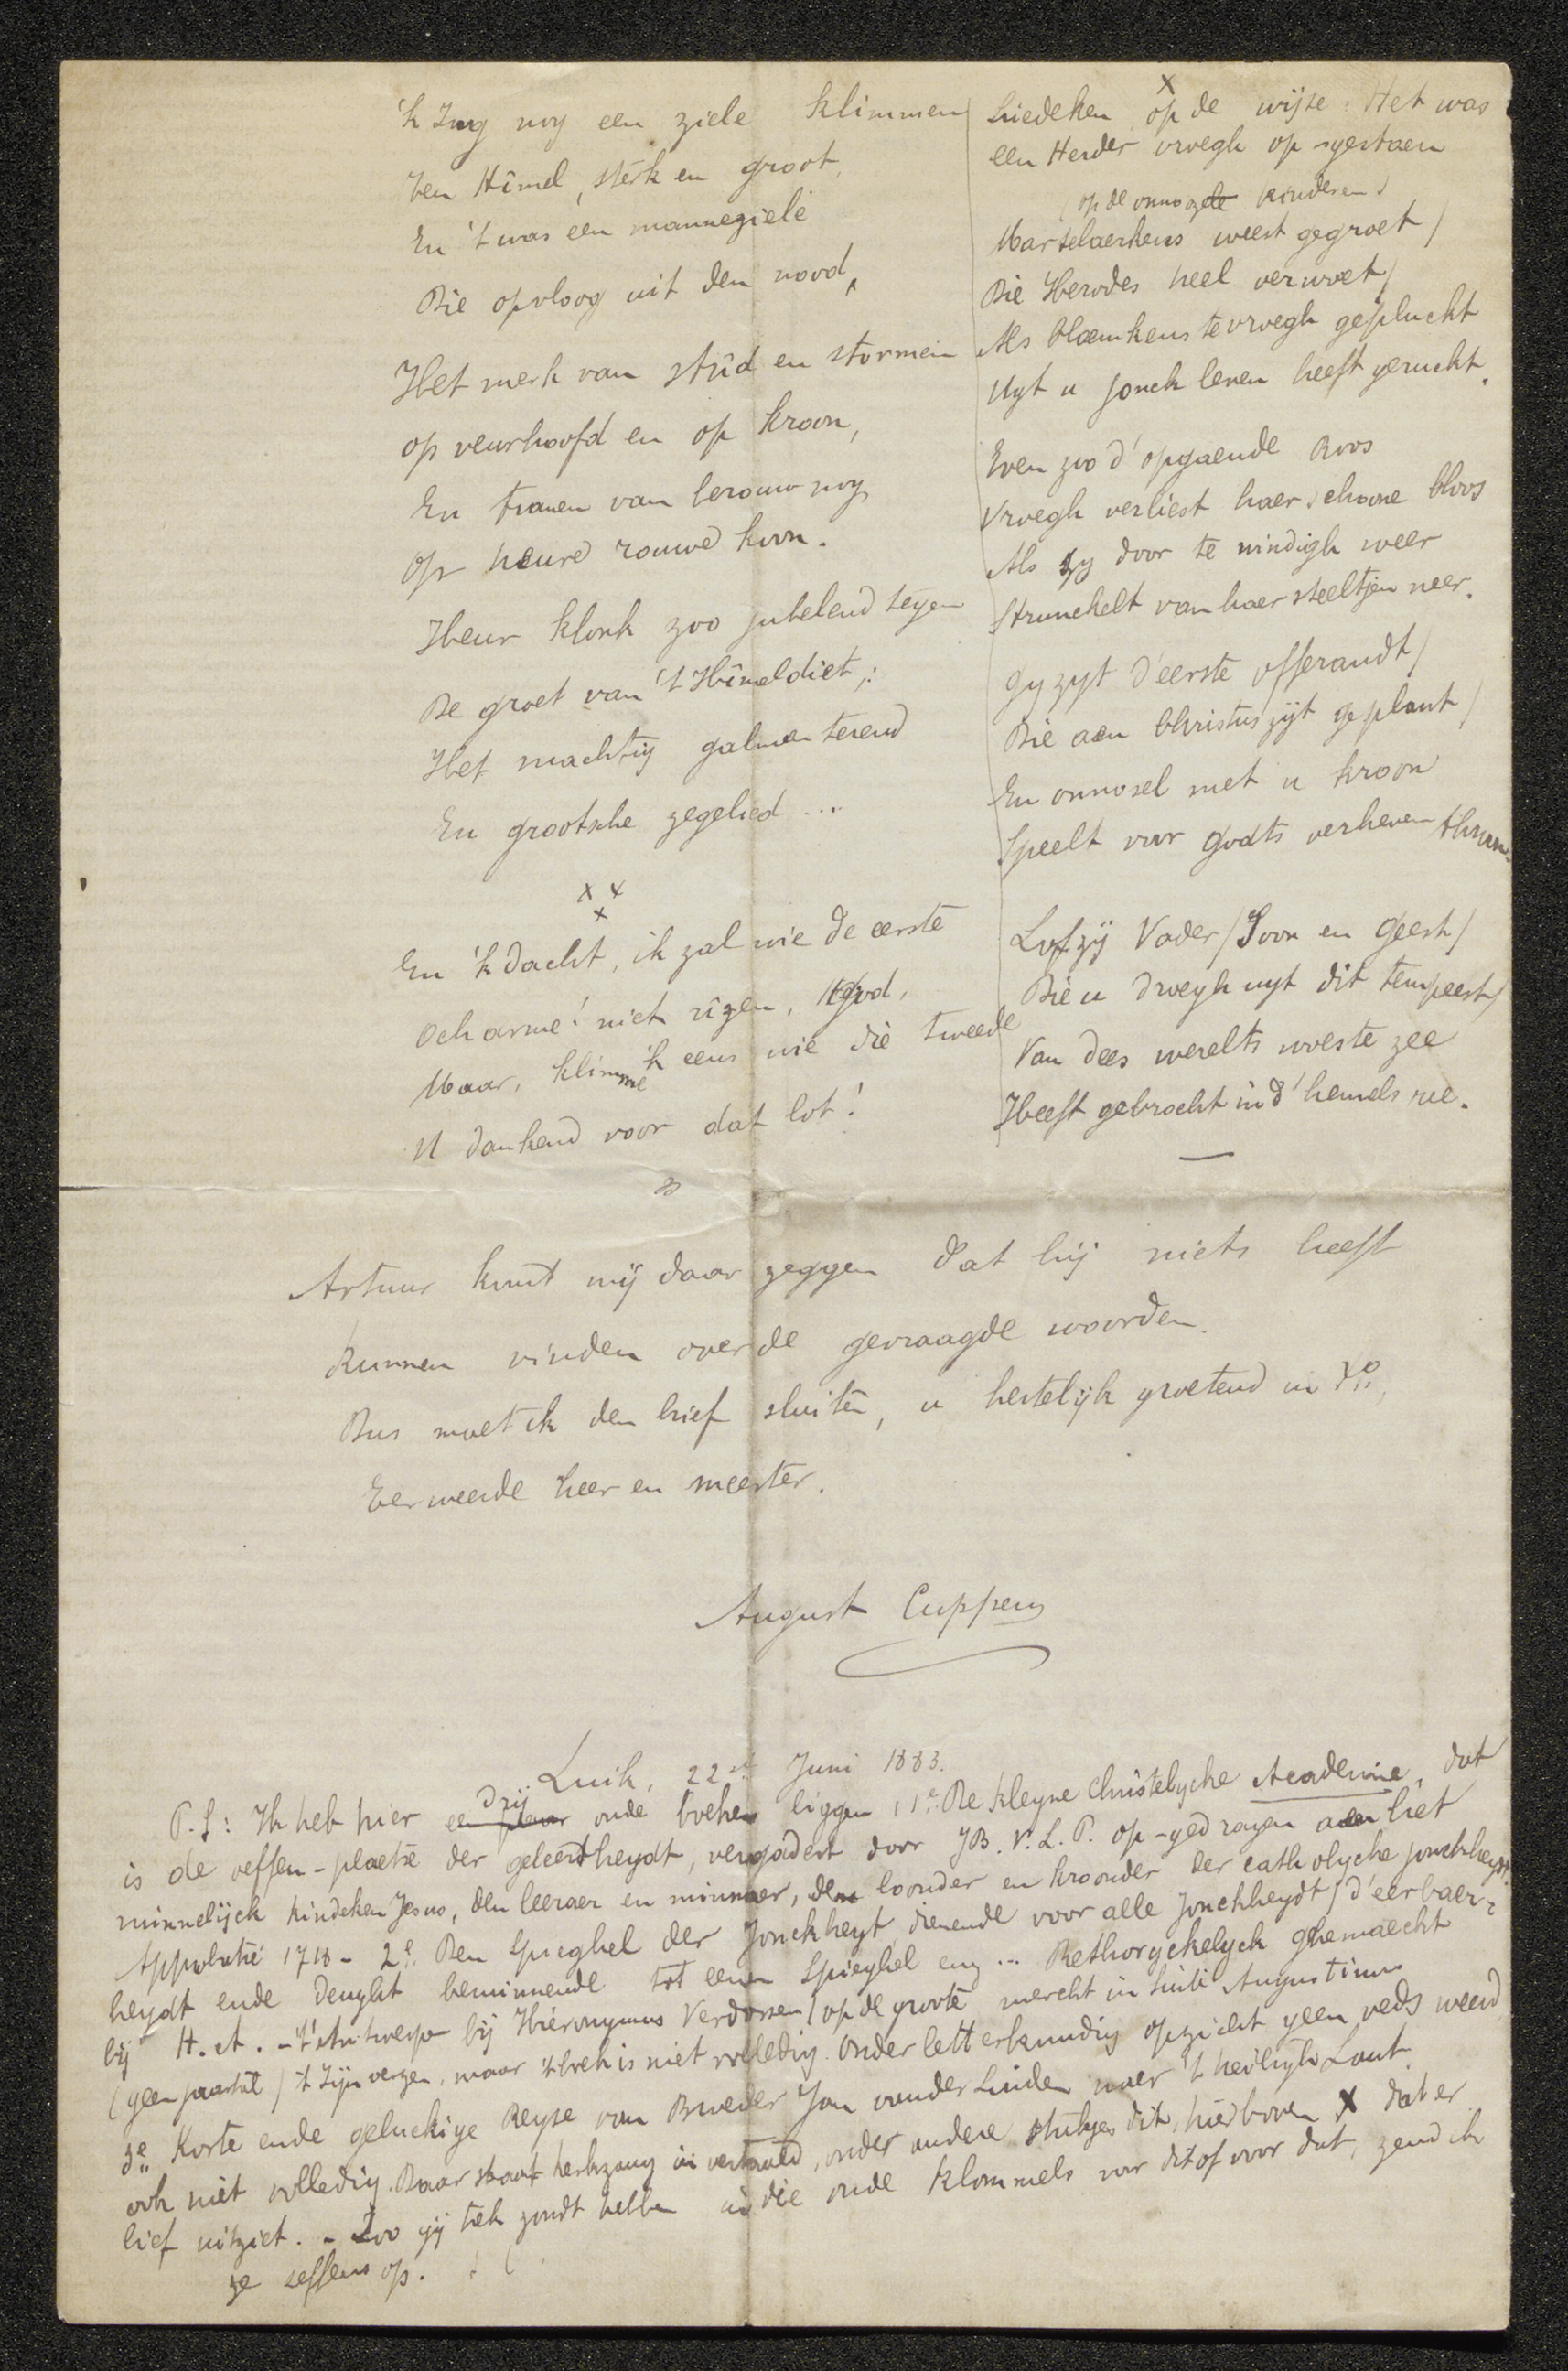 'k Zag nog een ziele klimmen
Ten Hîmel, sterk en groot,
En 't was een manneziele
Die opvloog uit den nood,
Het merk van strijd en stormen
op veurhoofd en op kroon,
En tranen van berouw nog
Op heure rouwe koon.
Heur klonk zoo jubelend tegen
De groet van 't Hîmeldiet;
Het machtig galmen terend
En grootsche zegelied ...
x x
x
En 'k dacht, ik zal wie de eerste
Och arme! niet rîzen, God,
Maar, klimme 'k eens wie die tweede
U dankend voor dat lot!
Liedeken op de wijse: Het was
x
een Herder vroegh op-gestaen
(op de onnozele kinderen)
Martelaerkens weest gegroet /
Die Herodes heel verwoet /
Als bloemkens te vroegh gepluckt
Uyt u jonck leven heeft geruckt.
Even zoo d'opgaende Roos
Vroegh verliest haer schoone bloos
Als zy door te windigh weer
Strunckelt van haer steeltjen neer.
Gy zyt d'eerste offerandt /
Die aen Christus zijt geplant /
En onnosel met u kroon
Speelt voor Godts verheven thrоon.
Lof zij Vader / Soon en Geest /
Die u droegh uyt dit tempeest /
Van dees werelts woeste zee
Heeft gebrocht in d'hemels ree.
Artuur komt mij daar zeggen dat hij niets heeft
kunnen vinden over de gevraagde woorden.
Dus moet ik den brief sluiten, u hertelijk groetend in
Eerweerde heer en meester.
August Cuppens
Luik, 22st Juni 1883.
P.S: Ik heb hier een paar drij oude boeken liggen, 1e: De kleyne Christelycke Academie, dat
is de oeffen-plaetse der geleertheydt, vergadert door JB. V. L. P. op-gedragen aen het
minnelijck kindeken Jesus, den leeraer en minnaer, den loonder en kroonder der catholycke jonckheydt.
Approbatie 1718 - 2e. Den Spieghel der Jonckheyt, dienende voor alle Jonckheydt / d'eerbaer-
heydt ende deught beminnende tot eenen Spieghel enz ... Rethoryckelyck ghemaeckt
bij H. A. - t'Antwerpen bij Hiëronymus Verdussen / op de groote merckt in Sinte Augustinus
(geen jaartal) 't Zijn verzen, maar 't boek is niet volledig. Onder letterkundig opzicht geen veds weerd
3e. Korte ende geluckige Reyse van Broeder Jan vander Linden naer 't heyligh Lant.
ook niet volledig. Daar staat kerkzang in vertaald, onder andere stukjes dit, hierboven X dat er
lief uitziet. - Zoo gij trek zoudt hebben in die oude klommels voor dit of voor dat, zend ik
ze seffens op.